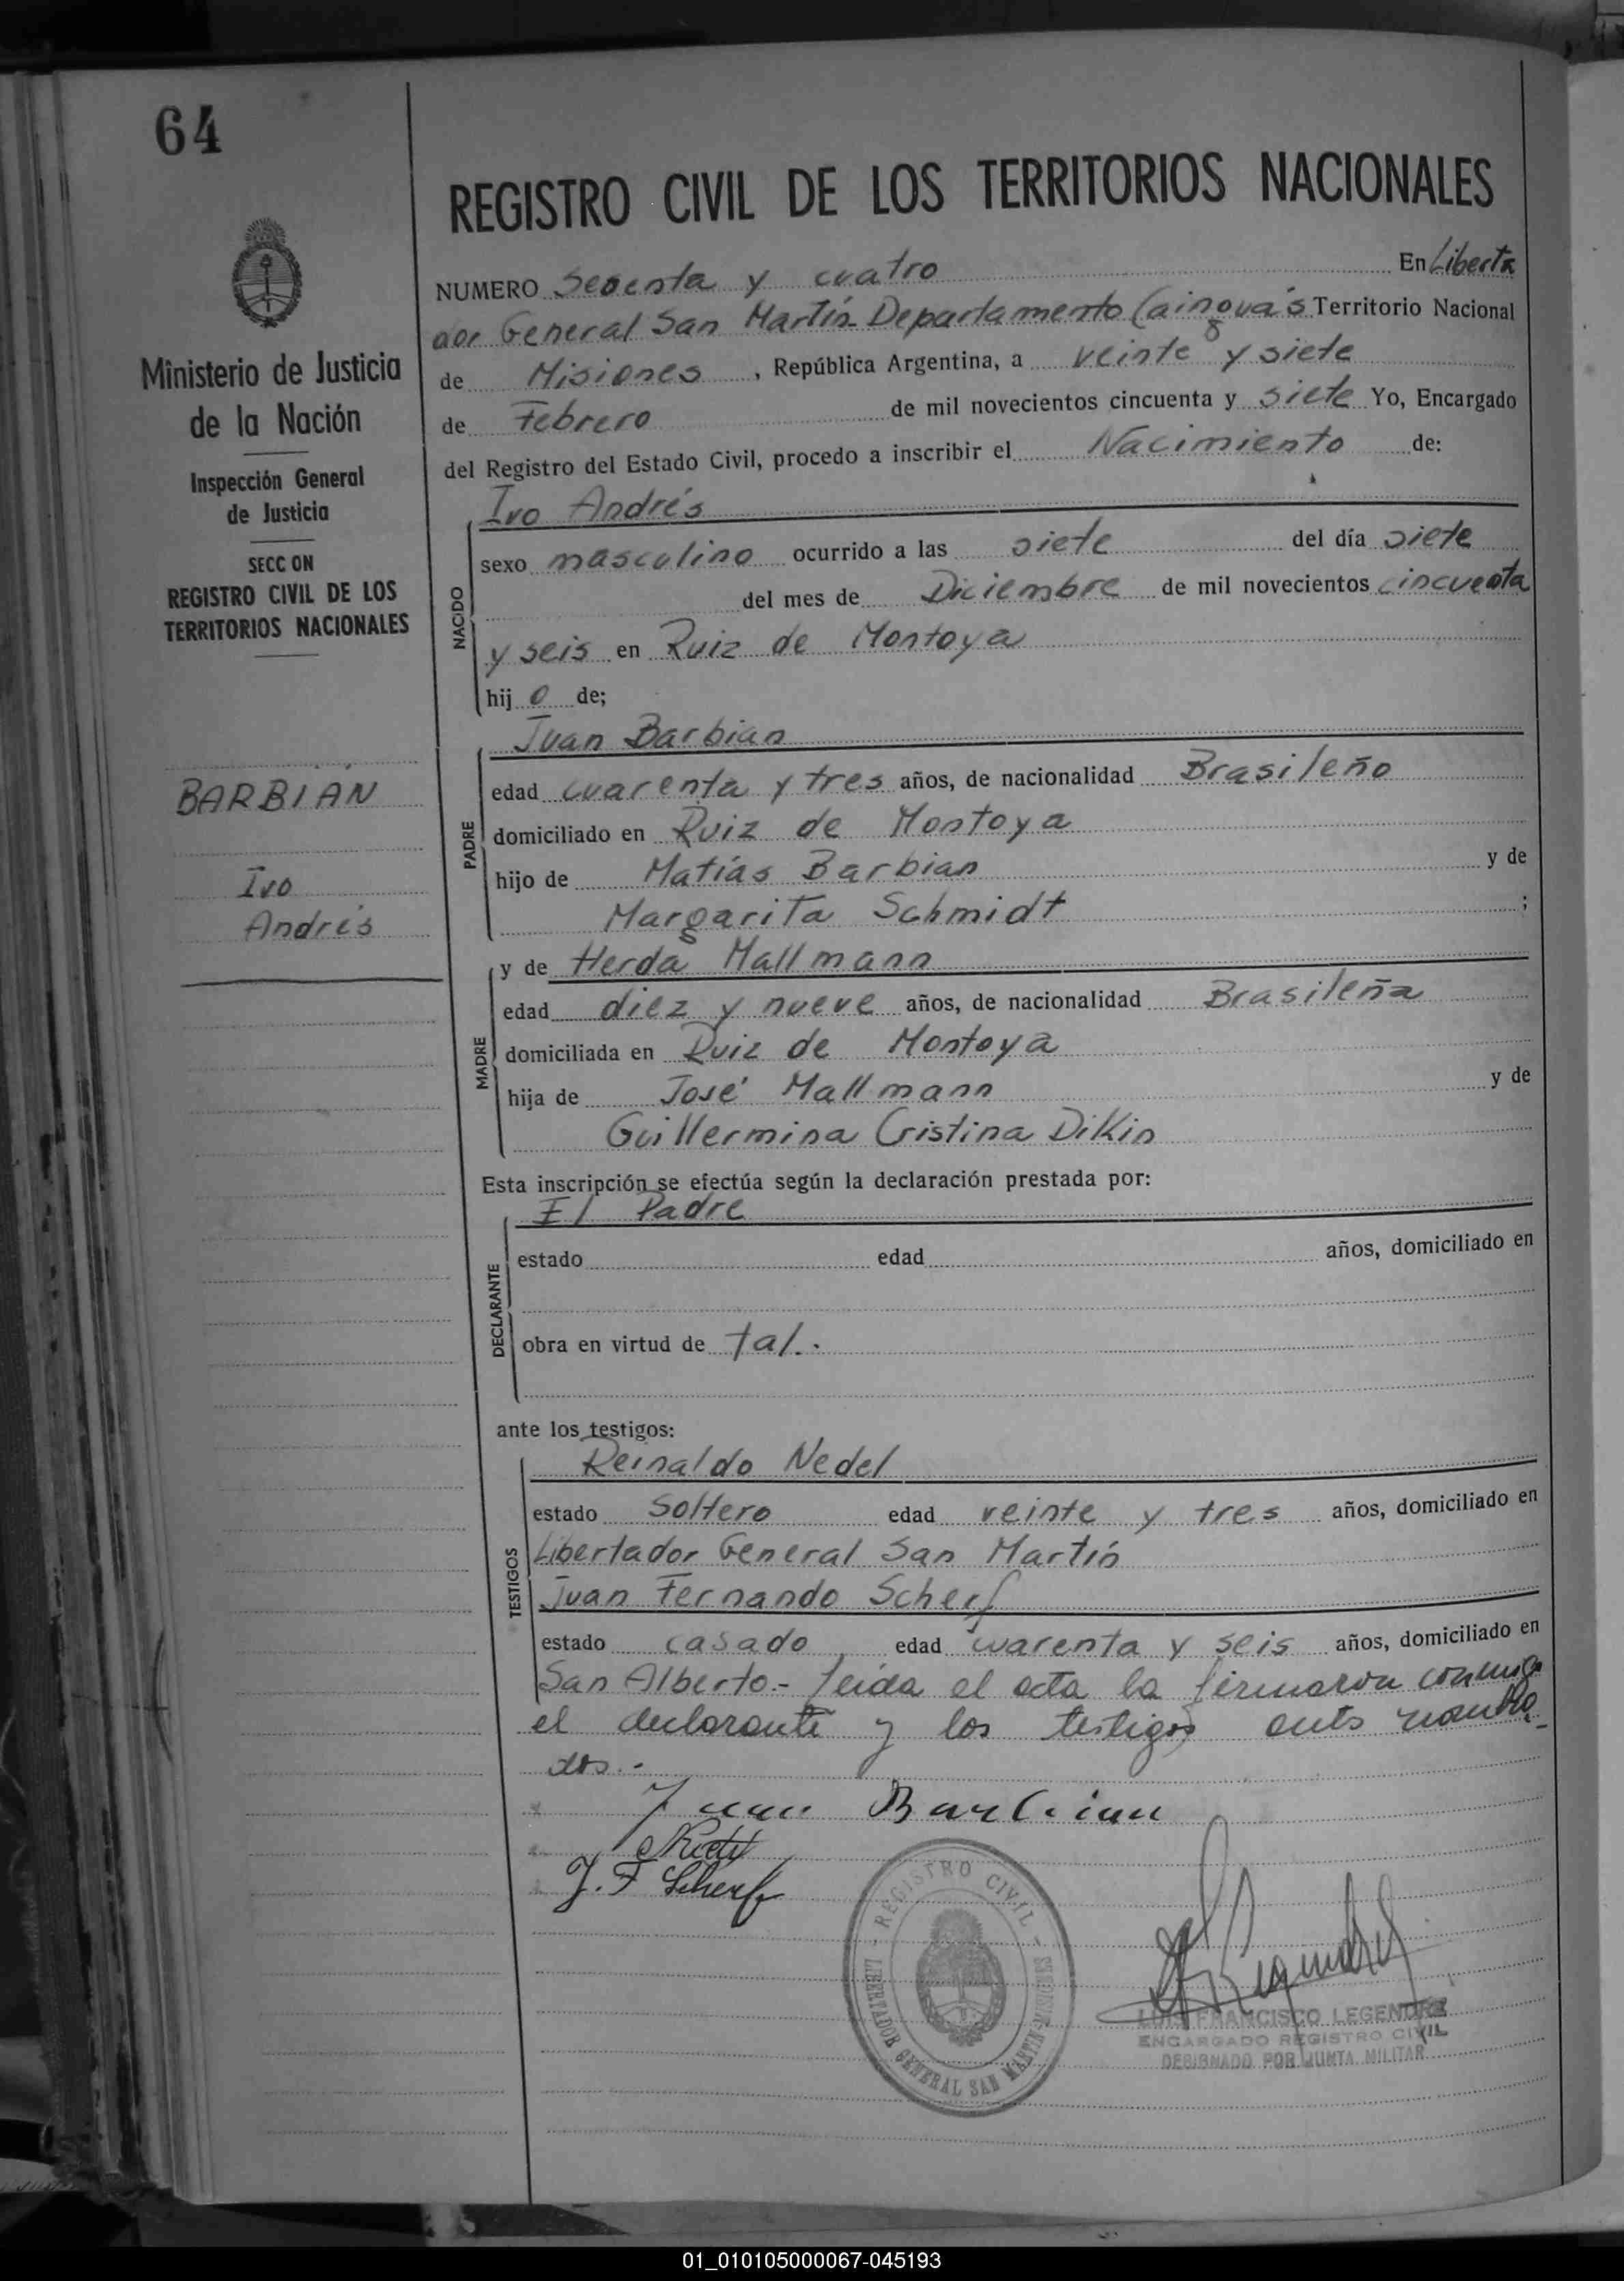 64
Ministerio de Justicia
de la Nación
Inspección General
de Justicia
SECC ON
REGISTRO CIVIL DE LOS
TERRITORIOS NACIONALES
BARBIAN
Ivo
Andrés
REGISTRO CIVIL DE LOS TERRITORIOS NACIONALES
NUMERO Sesenta y cuatro En Liberta
dor General San Martín Departamento Cainguás Territorio Nacional
de Misiones, República Argentina, a veinte y siete
de Febrero de mil novecientos cincuenta y siete Yo, Encargado
del Registro del Estado Civil, procedo a inscribir el Nacimiento de:
NACIDO
Ivo Andrés
sexo masculino ocurrido a las siete del día siete
del mes de Diciembre de mil novecientos cincuenta
y seis en Ruiz de Montoya
hij o de;
PADRE
Juan Barbian
edad cuarenta y tres años, de nacionalidad Brasileño
domiciliado en Ruiz de Montoya
hijo de Matías Barbian y de
Margarita Schmidt ;
MADRE
y de Herda Mallmann
edad diez y nueve años, de nacionalidad Brasileña
domiciliada en Ruiz de Montoya
hija de José Mallmann y de
Guillermina Cristina Dikin
Esta inscripción se efectúa según la declaración prestada por:
DECLARANTE
El Padre
estado edad años, domiciliado en
obra en virtud de tal.-
ante los testigos:
TESTIGOS
Reinaldo Nedel
estado Soltero edad veinte y tres años, domiciliado en
Libertador General San Martín
Juan Fernando Scherf
estado casado edad cuarenta y seis años, domiciliado en
San Alberto.- Leída el acta la firmaron conmigo
el declarante y los testigos ants nombra-
dos.-
Juan Barbian
J. F Scherf
REGISTRO CIVIL
LIBERTADOR GENERAL SAN MARTIN
LUIS FRANCISCO LEGENDRE
ENCARGADO REGISTRO CIVIL
DESIGNADO POR JUNTA MILITAR
01_010105000067-045193